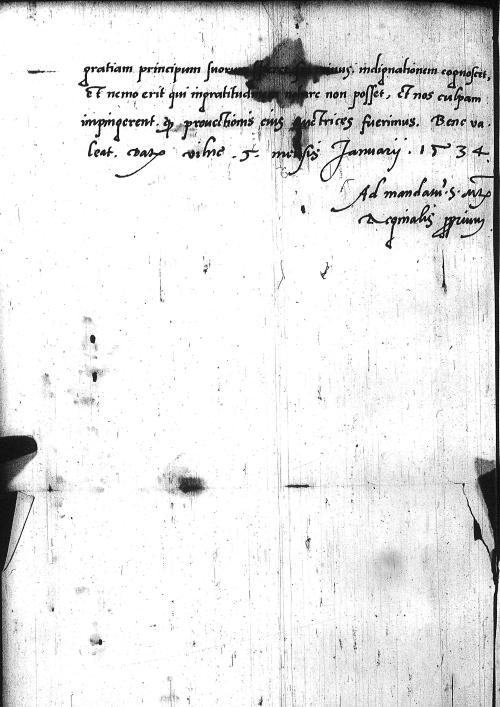 gratiam principum suorum indignationem cognoscet,
Et nemo erit qui ingratitudinem notare non posset, Et nos culpam
impingerent, ꝙ prouectionis eius auctrices fuerimus. Bene va
leat. Datꝭ vilne .5. mensis Januarij . 1534.
Ad mandatū S. Mtꝭ
Reginalis ꝓprium